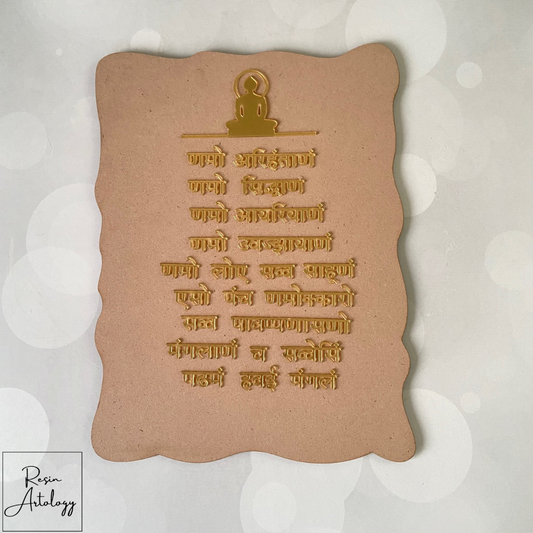 णमो अरिहंताणं
णमो सिद्धाणं
णमो आयरियाणं
णमो उवज्झायाणं
णमो लोए सव्व साहूणं
एसो पंच णमोक्कारो
सव्व पावप्पणासणो
मंगलाणं च सव्वेसिं
पढमं हवई मंगलं
Resin
Artology